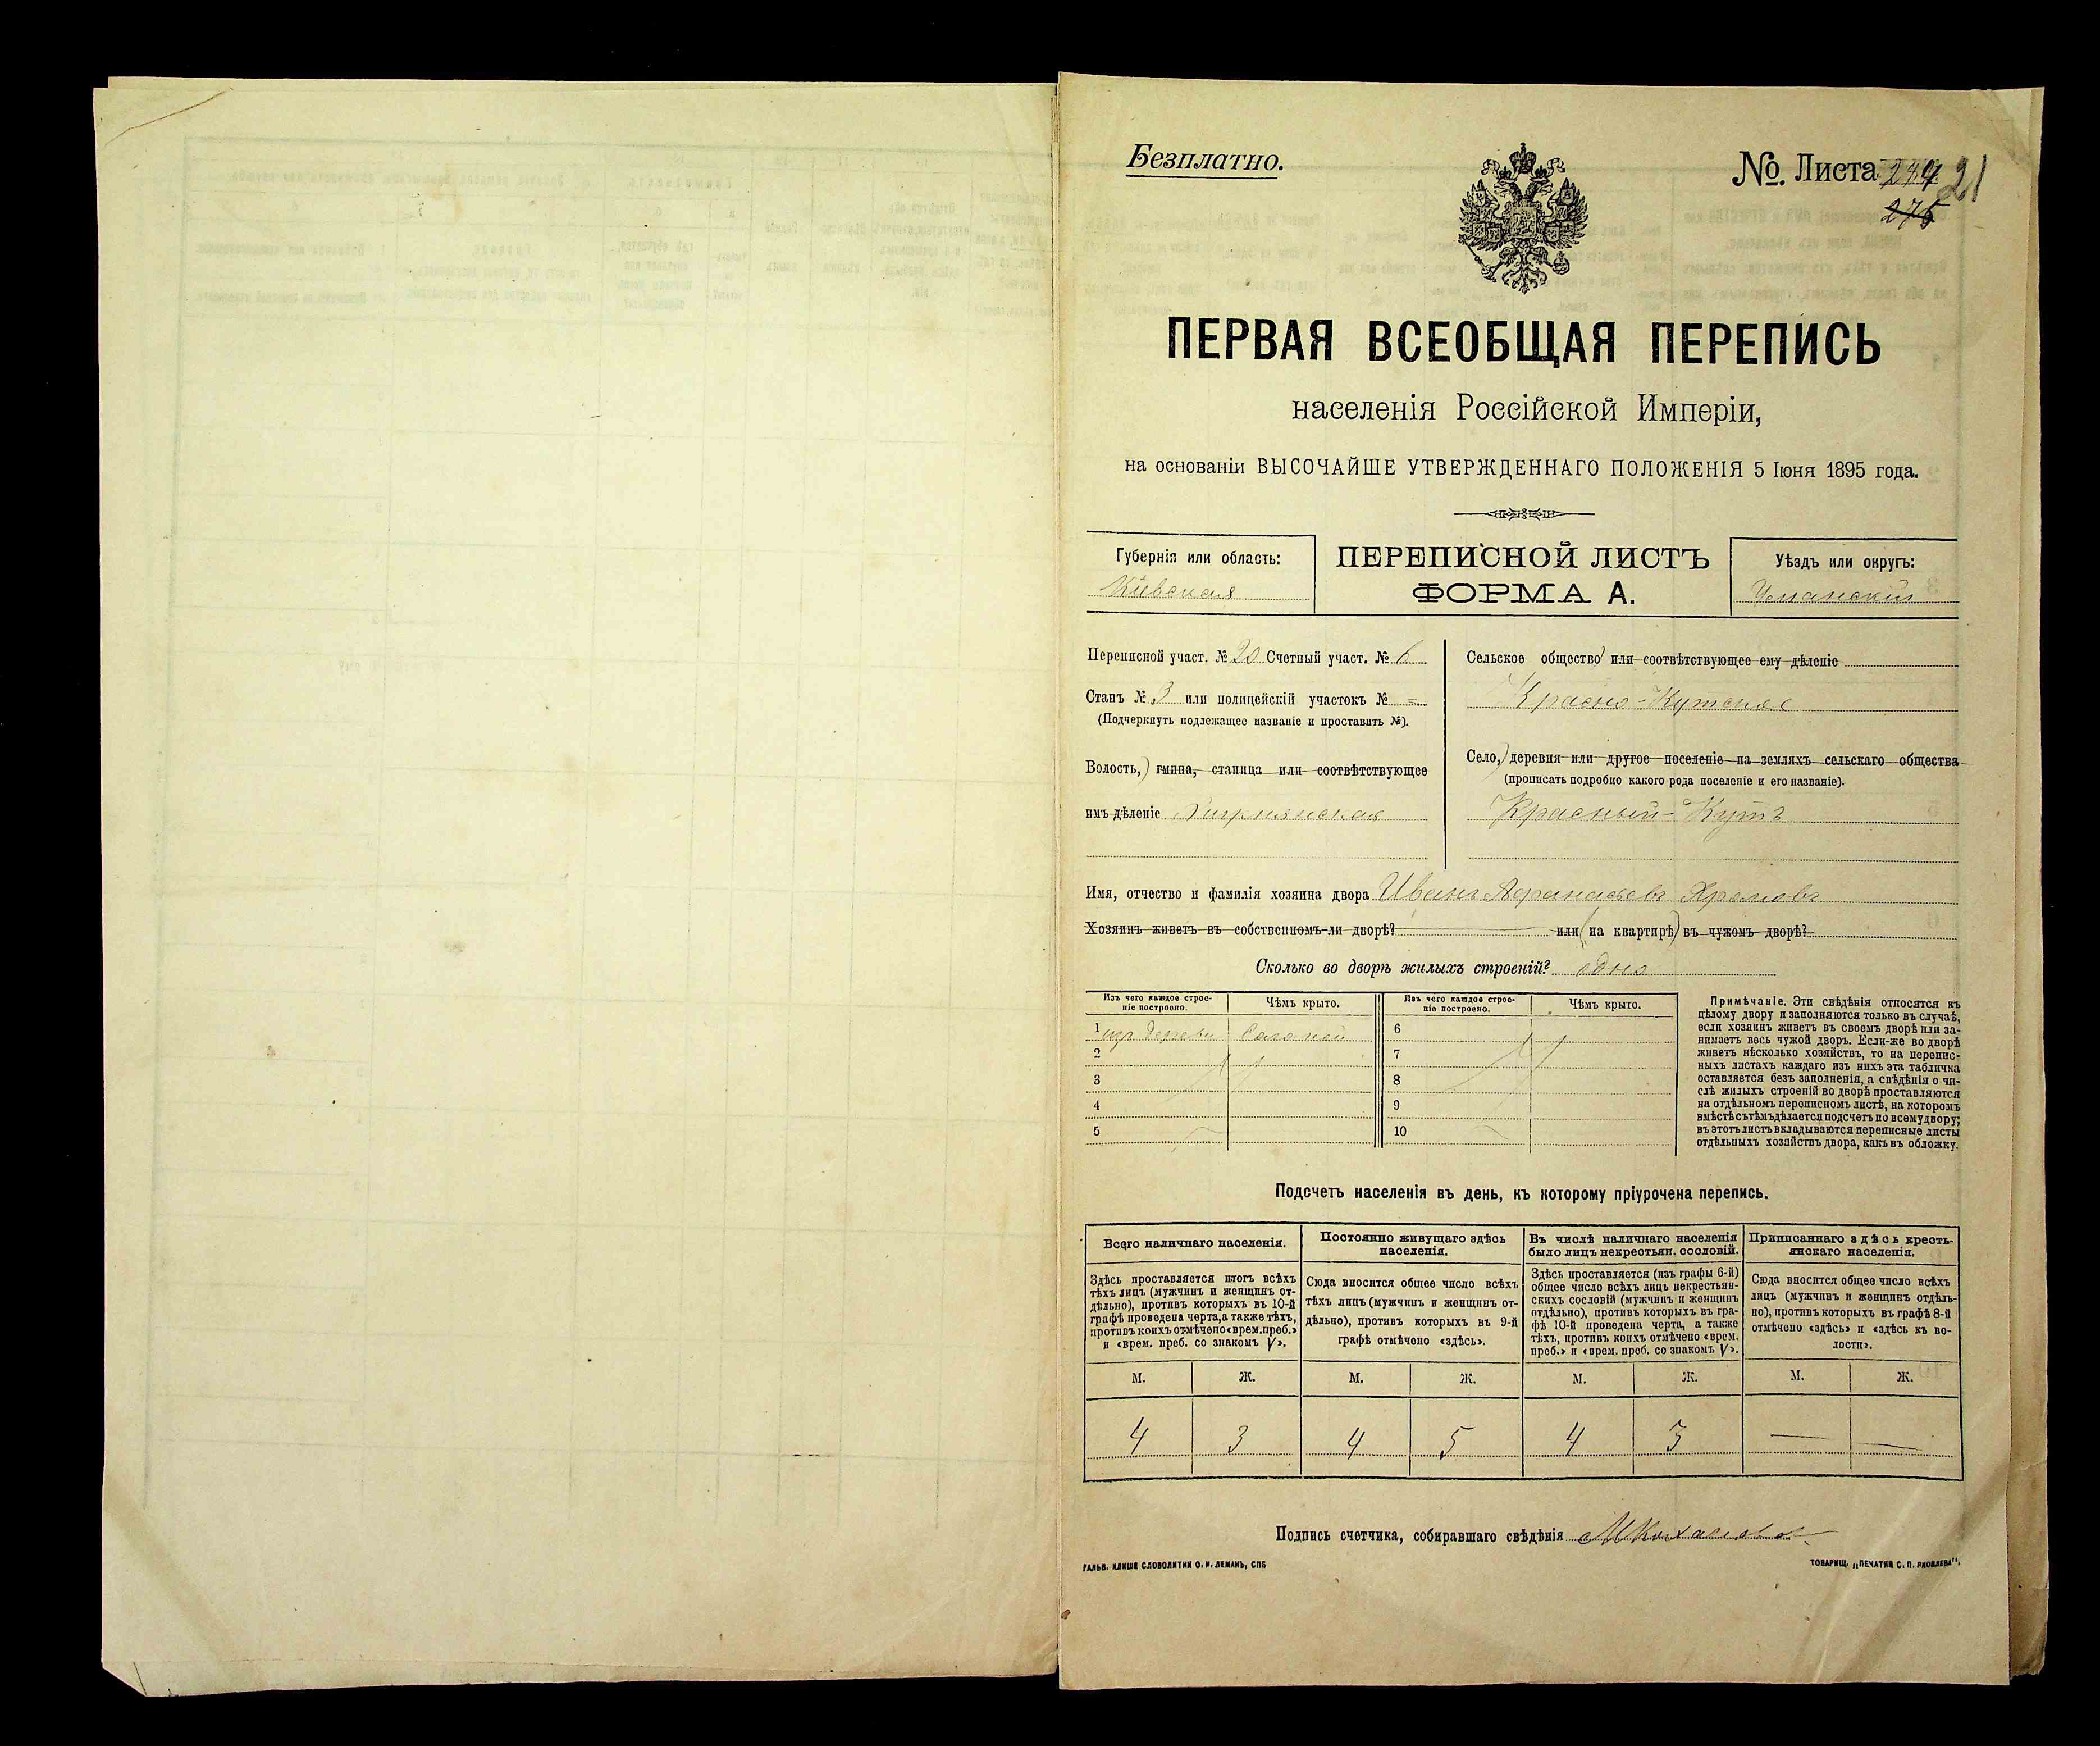 Безплатно.
№ Листа 21
ПЕРВАЯ ВСЕОБЩАЯ ПЕРЕПИСЬ
населенія Россійской Имперіи,
на основаніи ВЫСОЧАЙШЕ УТВЕРЖДЕННАГО ПОЛОЖЕНІЯ 5 Іюня 1895 года.
Губернія или область:
Кіевская
ПЕРЕПИСНОЙ ЛИСТЪ
ФОРМА А.
Уѣздъ или округъ:
Уманскій
Переписной участ. № 20 Счетный участ. № 6
Станъ № 3 или полицейскій участокъ № =
(Подчеркнуть подлежащее названіе и проставить №).
Волость, гмина, станица или соотвѣтствующее
имъ дѣленіе
Сельское общество или соотвѣтствующее ему дѣленіе
Красно-Кутское
Село, деревня или другое поселеніе на земляхъ сельскаго общества
(прописать подробно какого рода поселеніе и его названіе).
Красный-Кутъ
Имя, отчество и фамилія хозяина двора Иванъ Афанасьевъ Храмовъ
Хозяинъ живетъ въ собственномъ-ли дворѣ? или (на квартирѣ) въ чужомъ дворѣ?
Сколько во дворѣ жилыхъ строеній? одно
Изъ чего каждое строе-
ніе построено.
Чѣмъ крыто.
Изъ чего каждое строе-
ніе построено.
Чѣмъ крыто.
1 изъ дерева Соломой 6
2 7
3 8
4 9
5 10
Примѣчаніе. Эти свѣдѣнія относятся къ
цѣлому двору и заполняются только въ случаѣ,
если хозяинъ живетъ въ своемъ дворѣ или за-
нимаетъ весь чужой дворъ. Если-же во дворѣ
живетъ нѣсколько хозяйствъ, то на перепис-
ныхъ листахъ каждаго изъ нихъ эта табличка
оставляется безъ заполненія, а свѣдѣнія о чи-
слѣ жилыхъ строеній во дворѣ проставляются
на отдѣльномъ переписномъ листѣ, на которомъ
вмѣстѣ съ тѣмъ дѣлается подсчетъ по всему двору;
въ этотъ листъ вкладываются переписные листы
отдѣльныхъ хозяйствъ двора, какъ въ обложку.
Подсчетъ населенія въ день, къ которому пріурочена перепись.
Всего наличнаго населенія.
Здѣсь проставляется итогъ всѣхъ
тѣхъ лицъ (мужчинъ и женщинъ от-
дѣльно), противъ которыхъ въ 10-й
графѣ проведена черта, а также тѣхъ,
противъ коихъ отмѣчено «врем. преб.»
и «врем. преб. со знакомъ V».
М. Ж.
4 3
Постоянно живущаго здѣсь
населенія.
Сюда вносится общее число всѣхъ
тѣхъ лицъ (мужчинъ и женщинъ от-
дѣльно), противъ которыхъ въ 9-й
графѣ отмѣчено «здѣсь».
М. Ж.
4 5
Въ числѣ наличнаго населенія
было лицъ некрестьян. сословій.
Здѣсь проставляется (изъ графы 6-й)
общее число всѣхъ лицъ некрестьян-
скихъ сословій (мужчинъ и женщинъ
отдѣльно), противъ которыхъ въ гра-
фѣ 10-й проведена черта, а также
тѣхъ, противъ коихъ отмѣчено «врем.
преб.» и «врем. преб. со знакомъ V».
М. Ж.
4 3
Приписаннаго здѣсь кресть-
янскаго населенія.
Сюда вносится общее число всѣхъ
лицъ (мужчинъ и женщинъ отдѣль-
но), противъ которыхъ въ графѣ 8-й
отмѣчено «здѣсь» и «здѣсь къ во-
лости».
М. Ж.
— —
Подпись счетчика, собиравшаго свѣдѣнія
ГАЛЬВ. КЛИШЕ СЛОВОЛИТНИ О. И. ЛЕМАНЪ, СПБ
ТОВАРИЩ. „ПЕЧАТНЯ С. П. ЯКОВЛЕВА".